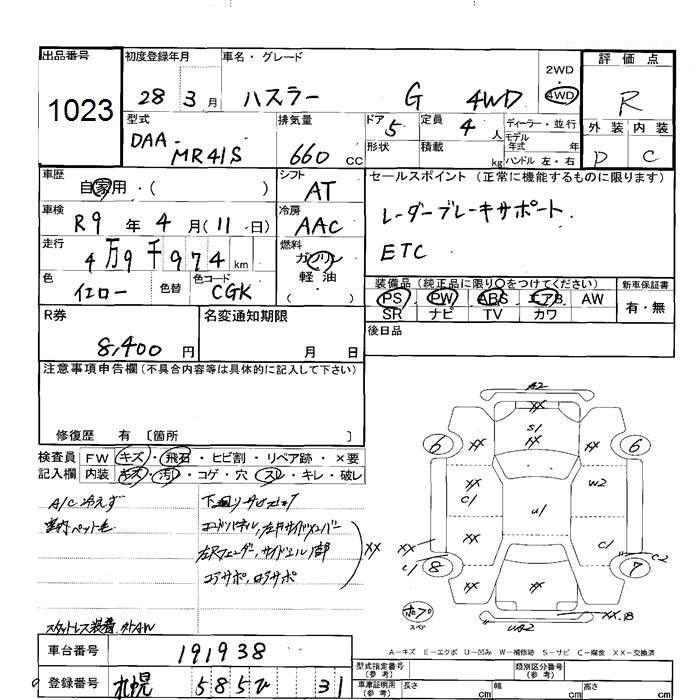 出品番号
1023
初度登録年月
28 3 月
車名・グレード
ハスラー G 4WD
2WD
・
4WD
評価点
R
型式
DAA-
MR41S
排気量
660 CC
ドア 5
形状
定員 4 人
積載 kg
ディーラー・並行
モデル
年式 年
ハンドル 左・右
外装 内装
D C
車歴
自家用・( )
シフト
AT
車検
R9 年 4 月 (11 日)
冷房
AAC
走行
4万9千974 km
燃料
ガソリン
軽油
( )
色
イエロー
色替
色コード
CGK
セールスポイント (正常に機能するものに限ります)
レーダーブレーキサポート
ETC
装備品 (純正品に限り〇をつけてください)
PS PW ABS エアB AW
SR ナビ TV カワ
新車保証書
有・無
後日品
R券
8,400 円
名変通知期限
月 日
注意事項申告欄 (不具合内容等は具体的に記入して下さい)
修復歴 有 〔箇所 〕
検査員 FW キズ・飛石・ヒビ割・リペア跡・×要
記入欄 内装 キズ・汚・コゲ・穴・スレ・キレ・破レ
A/C冷えず
室内ペット毛
コアサポ、ロアサポ
XX
スタットレス装着
A2
XX
S1
XX
6 6
XX XX
XX W2
C1
U1
XX XX C1
C1 8 7 C2
XX
XX・B
スペア
A－キズ E－エクボ U－凹み W－補修跡 S－サビ C－腐食 XX－交換済
車台番号
191938
登録番号
札幌 585 ひ 31
型式指定番号
(参考)
類別区分番号
(参考)
車庫証明用
(参考)
長さ cm
幅 cm
高さ cm